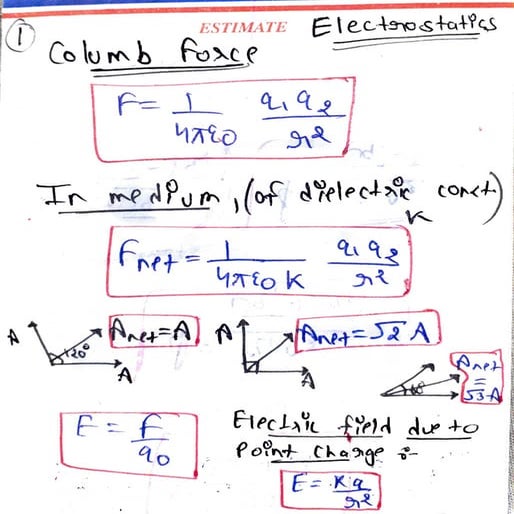 ① ESTIMATE Electrostatics
Columb force
F = 1/4πε0 q1 q2/r²
In medium, (of dielectric const)
K
Fnet = 1/4πε0 K q1 q2/r²
A 120° A Anet = A A A Anet = √2 A 60° Anet = √3 A
E = F/q0
Electric field due to
point charge :-
E = Kq/r²